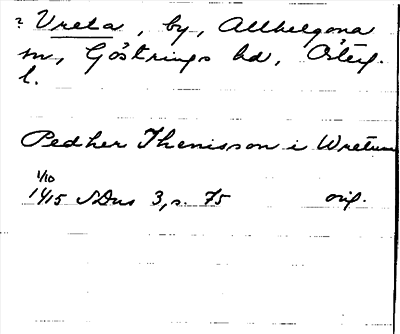 ? Vreta, by, Allhelgona
sn, Göstrings hd, Östergl.
l.
Pedher Thenisson i Wretum
1/10
1415 SDns 3, s. 75 orig.